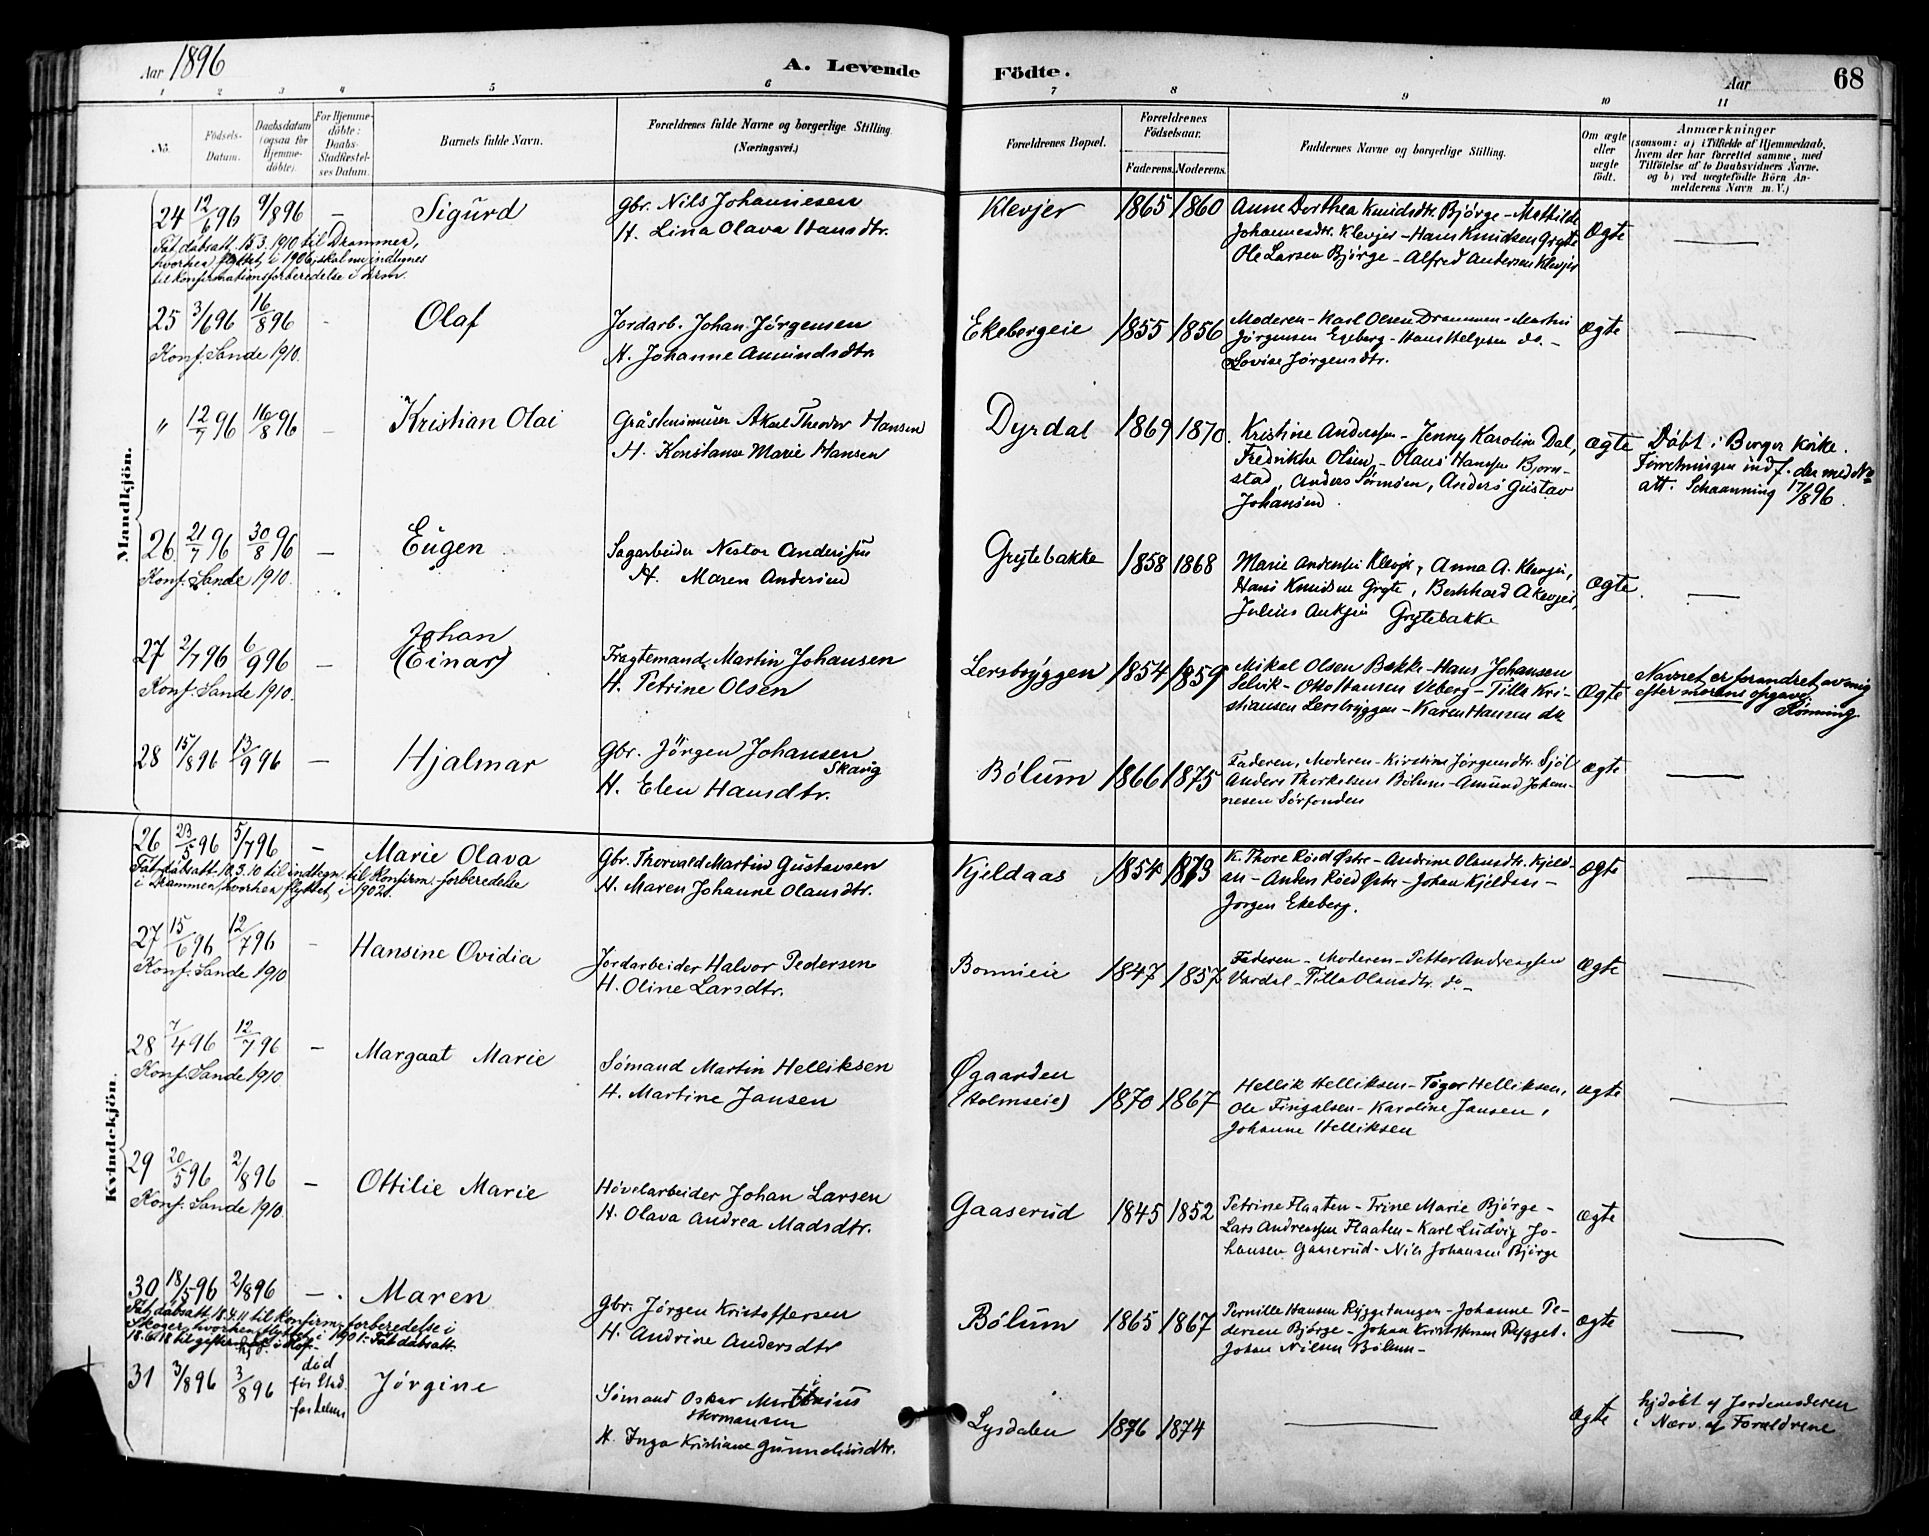 Aar 1896
A. Levende Födte.
Aar
68
1 2 3 4 5 6 7 8 9 10 11
No.
Födsels-Datum.
Daabsdatum (ogsaa for Hjemmedöbte).
For Hjemmedöbte: Daabs-Stadfæstelses Datum.
Barnets fulde Navn.
Forældrenes fulde Navne og borgerlige Stilling. (Næringsvei.)
Forældrenes Bopæl.
Forældrenes Födselsaar.
Faderens. Moderens.
Faddernes Navne og borgerlige Stilling.
Om ægte eller uægte födt.
Anmærkninger (saasom: a) i Tilfælde af Hjemmedaab, hvem der har forrettet samme, med Tilföielse af to Daabsvidners Navne, og b) ved uægtefödte Börn Anmelderens Navn m. V.)
Mandkjön.
24 12/6 96 9/8 96 – Sigurd
Gbr. Nils Johannesen
H. Lina Olava Hansdtr.
Klevjer 1865 1860
Anne Dorthea Knudsdtr. Bjørge – Mathilde
Johannesdtr. Klevjer – Hans Knudsen Gryte
Ole Larsen Bjørge – Alfred Andersen Klevjer
Ægte —
Fåt dåbsatt. 15.3.1910 til Drammen,
hvorhen flyttet i 1906, skal nu indtegnes
til konfirmationsforberedelse i Drm.
25 3/6 96 16/8 96 – Olaf
Jordarb. Johan Jørgensen
H. Johanne Amundsdtr.
Ekebergeie 1855 1856
Moderen – Karl Olsen Drammen – Martin
Jørgensen Egeberg – Hans Helgesen do. –
Lovise Jørgensdtr.
Ægte —
Konf. Sande 1910.
" 12/7 96 16/8 96 – Kristian Olai
Gråstensmurer Karl Theodor Hansen
H. Konstanse Marie Hansen
Dyrdal 1869 1870
Kristine Anderssen – Jenny Karoline Dal,
Fredrikke Olsen – Olaus Hanssen Bjorn-
stad, Anders Sørmoen, Anders Gustav
Johansen.
Ægte
Døbt i Berger kirke.
Forretningen indf. der med No
att. Schaanning 17/8 96.
26 21/7 96 30/8 96 – Eugen
Sagarbeider Nestor Anderssen
H. Maren Andersen
Grytebakke 1858 1868
Marie Andersen Klevjer, Anna A. Klevjer,
Hans Knudsen Grytte, Bernhard A Klevjer,
Julius Grytebakke
Ægte. —
Konf. Sande 1910.
27 2/7 96 6/9 96 – Johan
(Einar)
Fragtemand Martin Johansen
H. Petrine Olsen
Lersbryggen 1854 1859
Mikal Olsen Bakke – Hans Johansen
Selvik – Otto Hansen Veberg – Tilla Kri-
stiansen Lersbryggen – Karen Hansen do
Ægte
Navnet er forandret av mig
efter morens opgave.
Rønning
Konf. Sande 1910.
28 15/8 96 13/9 96 – Hjalmar
Gbr. Jörgen Johansen
Skavg
H. Elen Hansdtr.
Bølum 1866 1875
Faderen, Moderen – Kirstine Jørgensdtr. Sjøl
Anders Thorkelsen Bølum – Amund Johan-
nesen Sørfonden
Ægte —
Kvindekjön.
26 23/5 96 5/7 96 – Marie Olava
Gbr. Thorvald Martin Gustavsen
H. Maren Johanne Olausdtr.
Kjeldaas 1854 1873
K. Thore Røed Østre – Andrine Olausdtr. Kjeld-
aas – Anders Røed Østre – Johan Kjeldaas –
Jørgen Ekeberg.
Ægte —
Fåt dåbsatt. 10.3.10 til indtegn. til konfirm. forberedelse
i Drammen, hvorhen flyttet i 1902.
27 15/6 96 12/7 96 – Hansine Ovidia
Jordarbeider Halvor Pedersen
H. Oline Larsdtr.
Bonnieie 1847 1857
Faderen – Moderen – Petter Andreassen
Vardal – Tilla Olausdtr. do –
Ægte —
Konf. Sande 1910
28 7/4 96 12/7 96 – Margaat Marie
Sømand Martin Helliksen
H. Martine Jansen
Øgaarden
(Holmseie) 1870 1867
Hellik Helliksen – Helliksen,
Ole Fingalsen – Karoline Jansen,
Johanne Helliksen
Ægte —
Konf. Sande 1910
29 20/5 96 2/8 96 – Ottilie Marie
Høvelarbeider Johan Larsen
H. Olava Andrea Madsdtr.
Gaaserud 1845 1852
Petrine Flaaten – Trine Marie Bjørge –
Lars Andreassen Flaaten – Karl Ludvig Jo-
hansen Gaaserud – Nils Johansen Bjørge
Ægte —
Konf. Sande 1910.
30 18/5 96 2/8 96 – Maren
Gbr. Jørgen Kristoffersen
H. Andrine Andersdtr
Bølum 1865 1867
Pernille Hansen Ryggetangen – Johanne Pe-
dersen Bjørge – Johan Kristoffersen Rygget.
Johan Nilsen Bølum –
Ægte —
Fåt dåbsatt. 18.4.11 til konfirm. forberedelse i
Skoger, hvorhen flyttet i 1901. Fåt dåbsatt.
18.6.18 til giftermål
31 3/8 96 3/8 96 død
før Stad-
fæstelsen
Jørgine
Sømand Oskar Martinius
Hermansen
H. Inga Kristiane Gunnelusdtr.
Lysdalen 1876 1874
—
Ægte
hjdøbt af Jordemoderen
i Nærv. af Forældrene